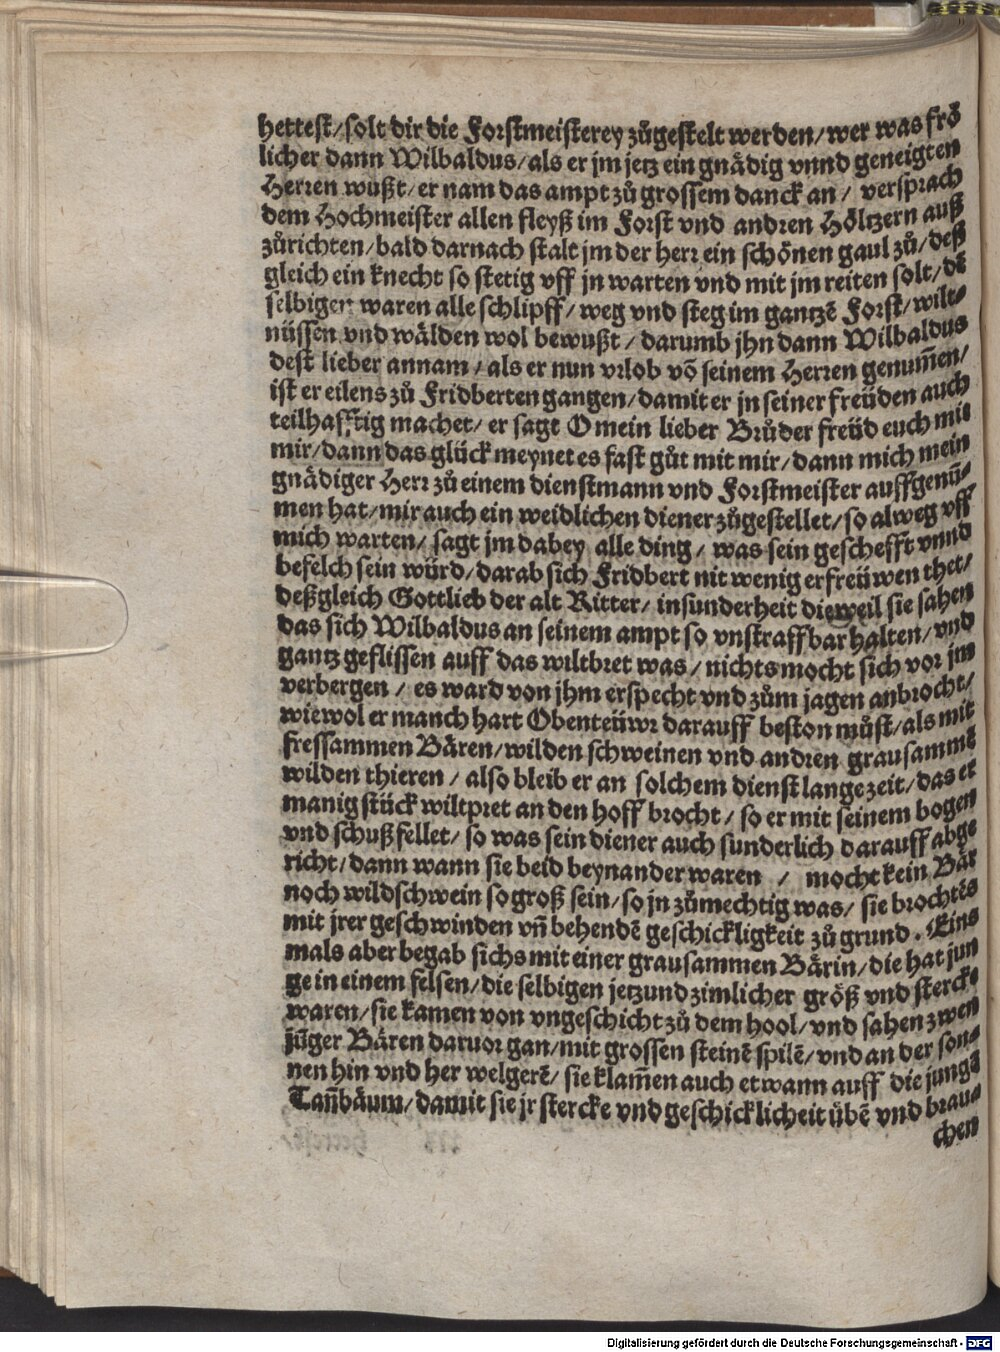 hettest/solt dir die Forstmeisterey zůgestelt werden/wer was frö
licher dann Wilbaldus/als er jm jetz ein gnädig vnnd geneigten
Herren wußt/er nam das ampt zů grossem danck an/ versprach
dem Hochmeister allen fleyß im Forst vnd andren Höltzern auß
zůrichten/bald darnach stalt jm der herr ein schönen gaul zů/deß
gleich ein knecht so stetig vff jn warten vnd mit jm reiten solt/dẽ
selbigen waren alle schlipff/weg vnd steg im gantzẽ Forst/wilt-
nüssen vnd wälden wol bewußt/darumb jhn dann Wilbaldus
dest lieber annam/als er nun vrlob võ seinem Herren genum̃en/
ist er eilens zů Fridberten gangen/damit er jn seiner freüden auch
teilhafftig machet/er sagt O mein lieber Brůder freüd euch mit
mir/dann das glück meynet es fast gůt mit mir/dann mich mein
gnädiger Herr zů einem dienstmann vnd Forstmeister auffgenũ-
men hat/mir auch ein weidlichen diener zůgestellet/so alweg vff
mich warten/sagt jm dabey alle ding/was sein geschefft vnnd
befelch sein würd/darab sich Fridbert nit wenig erfreüwen thet/
deßgleich Gottlieb der alt Ritter/insunderheit dieweil sie sahen
das sich Wilbaldus an seinem ampt so vnstraffbar halten/vnd
gantz geflissen auff das wiltbret was/nichts mocht sich vor jm
verbergen/es ward von jhm erspecht vnd zům jagen anbrocht/
wiewol er manch hart Obenteüwr darauff beston můst/als mit
fressammen Bären/wilden schweinen vnd andren grausammẽ
wilden thieren/also bleib er an solchem dienst lange zeit/das er
manig stück wiltpret an den hoff brocht/so er mit seinem bogen
vnd schuß fellet/so was sein diener auch sunderlich darauff abge
richt/dann wann sie beid beynander waren / mocht kein Bär
noch wildschwein so groß sein/so jn zůmechtig was/sie brochtẽs
mit jrer geschwinden vñ behendẽ geschickligkeit zů grund. Eins
mals aber begab sichs mit einer grausammen Bärin/die hat jun
ge in einem felsen/die selbigen jetzund zimlicher größ vnd stercke
waren/sie kamen von vngeschicht zů dem hool/vnd sahen zwen
jũger Bären daruor gan/mit grossen steinẽ spilẽ/vnd an der son-
nen hin vnd her welgerẽ/sie klam̃en auch etwann auff die jungẽ
Tañbäum/damit sie jr stercke vnd geschicklicheit übẽ vnd brau-
chen
Digitalisierung gefördert durch die Deutsche Forschungsgemeinschaft - DFG